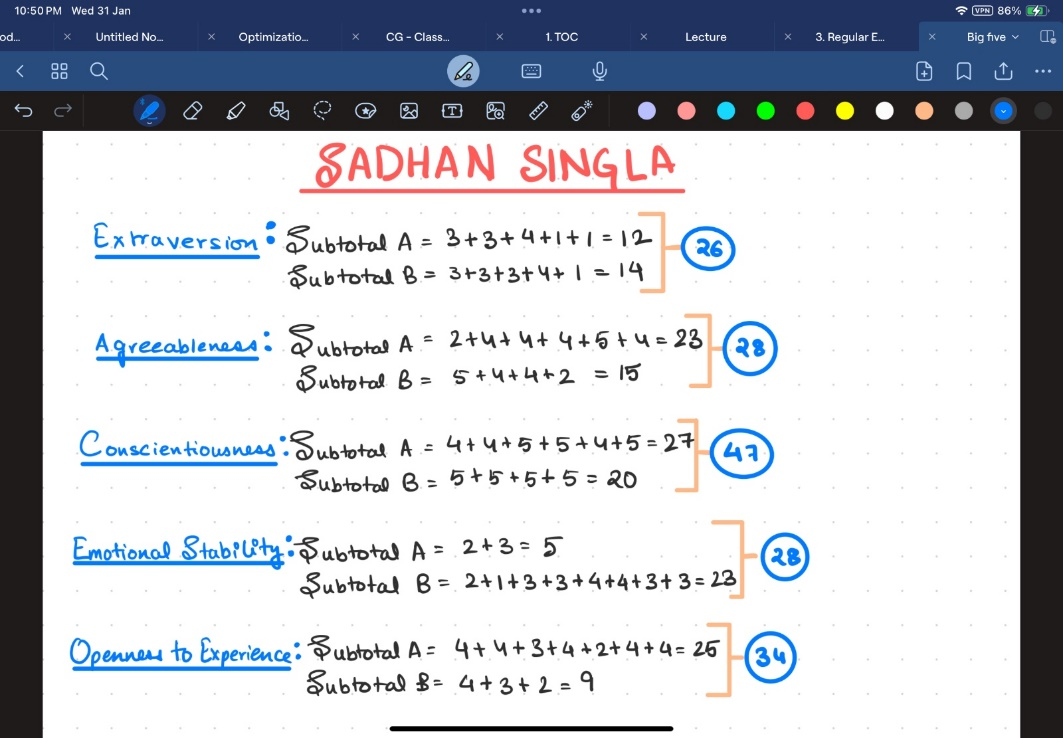 10:50 PM Wed 31 Jan
VPN 86%
od... Untitled No... Optimizatio... CG - Class... 1. TOC Lecture 3. Regular E... Big five
SADHAN SINGLA
Extraversion : Subtotal A = 3+3+4+1+1 = 12
26
Subtotal B = 3+3+3+4+1 = 14
Agreeableness : Subtotal A = 2+4+4+4+5+4 = 23
28
Subtotal B = 5+4+4+2 = 15
Conscientiousness : Subtotal A = 4+4+5+5+4+5 = 27
47
Subtotal B = 5+5+5+5 = 20
Emotional Stability : Subtotal A = 2+3 = 5
28
Subtotal B = 2+1+3+3+4+4+3+3 = 23
Openness to Experience : Subtotal A = 4+4+3+4+2+4+4 = 25
34
Subtotal B = 4+3+2 = 9